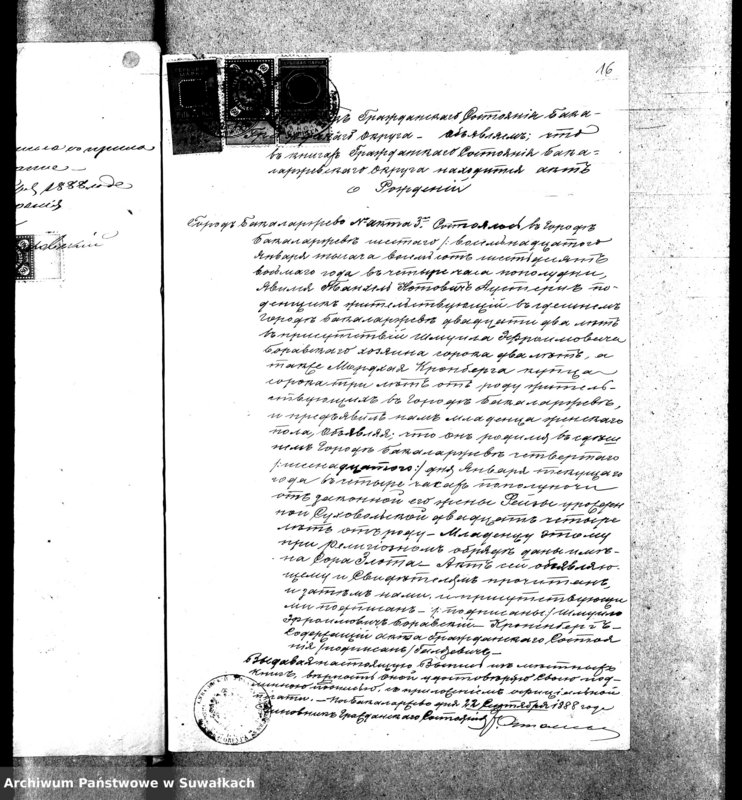 16
Гражданскаго Состоянія Бака-
Округа – Объявляемъ; что
въ книгахъ Гражданскаго Состоянія Бака-
ларжевскаго Округа находится актъ
о Рожденій
Городъ Бакаларжево № акта 3й Состоялось въ Городѣ
Бакаларжевѣ шестаго /: восемьнадцатого
Января тысяча восемьсотъ шестьдесятъ
восьмаго года въ четыре часа пополудни,
явился Іотовичъ Аустернъ по-
денщикъ жительствующій въ здешнемъ
Городѣ Бакаларжевѣ двадцати два лѣтъ
въ присутствій Шмуила Эфроимовича
Боравскаго хозяина сорока два лѣтъ, а
также Мордхая Кронберга купца
сорока три лѣтъ отъ роду житель-
ствующихъ въ Городѣ Бакаларжевѣ,
и предъявилъ намъ младенца женскаго
пола, объявляя; что онъ родился въ здеш-
немъ Городѣ Бакаларжевѣ четвертаго
/:шеснадцатого:/ дня Января текущаго
года въ четыре часа пополуночи
отъ законной его жены Рейзы урожден-
ной Суховольской двадцать четыре
лѣтъ отъ роду – Младенцу этому
при религіозномъ обрядѣ даны имѣ-
на Сора Злота – Актъ сей объявляю-
щему и Свидѣтелямъ прочитанъ,
и затѣмъ нами и присутствующи
ми подписанъ – /:подписаны/ Шмуило
Эфроимовичъ Боравскій Кронбергъ –
Содержащій акта Гражданскаго Состоя
нія /подписанъ/
Выдавая настоящую Выпись изъ мѣстныхъ
книгъ, вѣрность оной удостовѣряю Свою под-
писью съ приложеніемъ оффиціальной
печати. – Бакаларжево дня 22 Сентября 1888 года
Чиновникъ Гражданскаго Состоянія
1888 годе
Archiwum Państwowe w Suwałkach